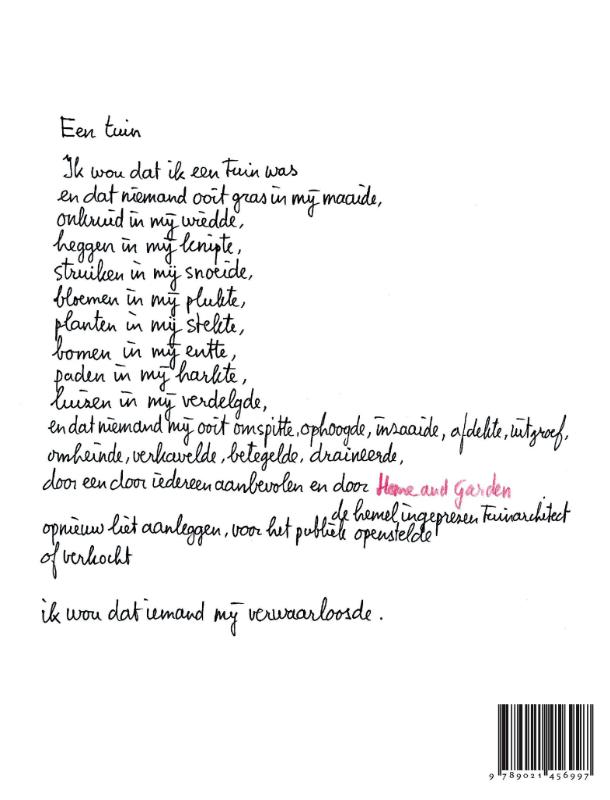 Een tuin
Ik wou dat ik een tuin was
en dat niemand ooit gras in mij maaide,
onkruid in mij wiedde,
heggen in mij knipte,
struiken in mij snoeide,
bloemen in mij plukte,
planten in mij stekte,
bomen in mij entte,
paden in mij harkte,
luizen in mij verdelgde,
en dat niemand mij ooit omspitte, ophoogde, inzaaide, afdekte, uitgroef,
omheinde, verkavelde, betegelde, draineerde,
door een door iedereen aanbevolen en door Home and Garden
de hemel ingeprezen tuinarchitect
opnieuw liet aanleggen, voor het publiek openstelde
of verkocht
ik wou dat iemand mij verwaarloosde.
9 789021 456997